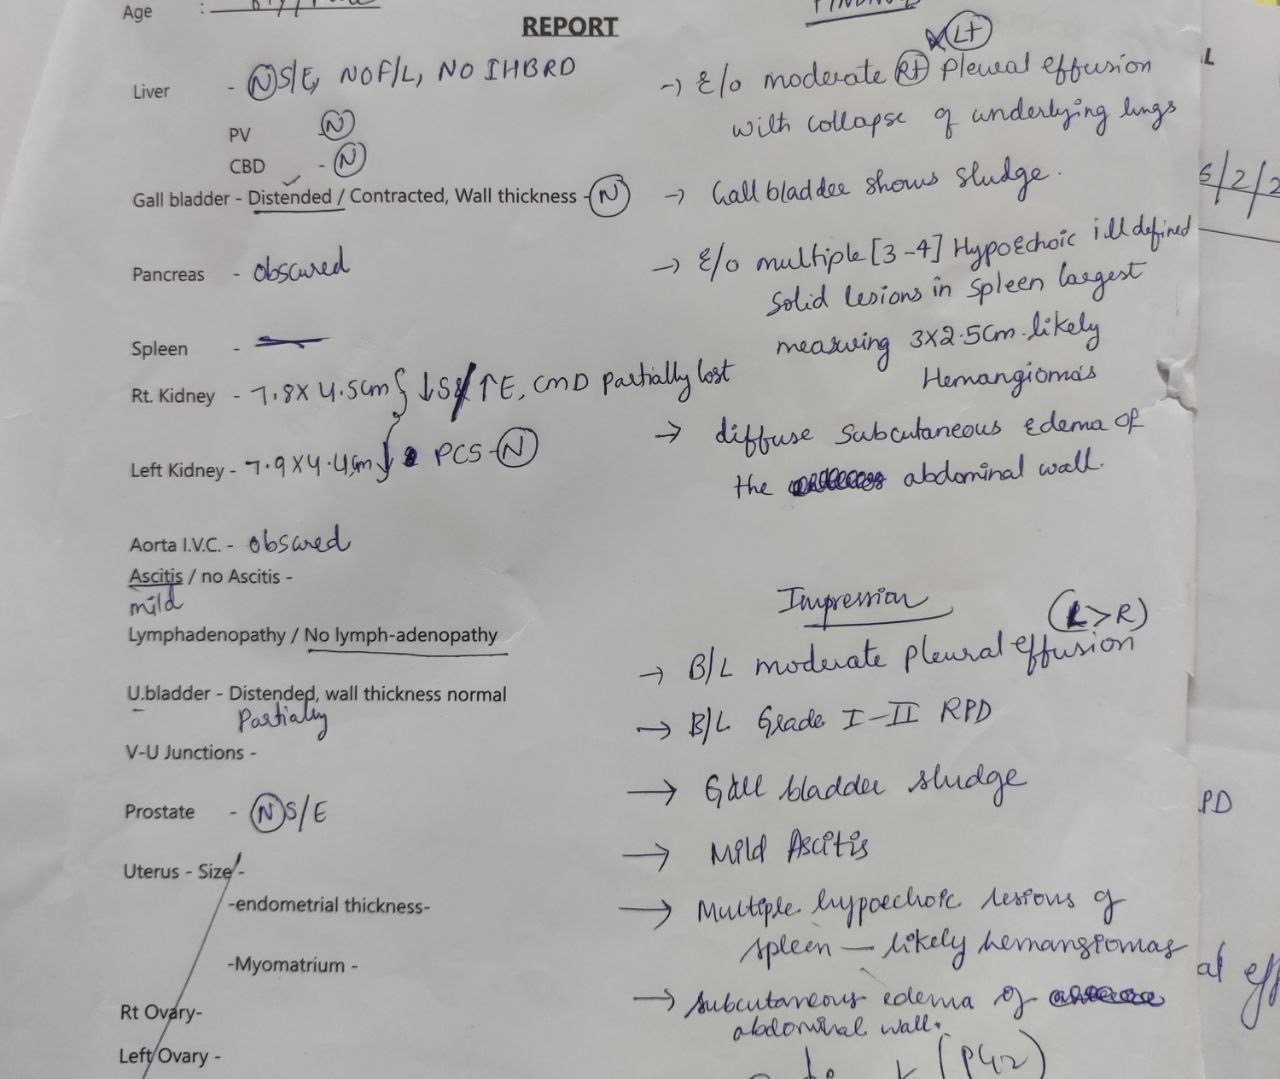 Age :
REPORT
Liver - (N) S/E, NO F/L, NO IHBRD
PV (N)
CBD - (N)
Gall bladder - Distended / Contracted, Wall thickness - (N)
Pancreas - obscured
Spleen -
Rt. Kidney - 7.8 X 4.5cm } ↓S/↑E, CMD Partially lost
Left Kidney - 7.9 X 4.4cm PCS - (N)
Aorta I.V.C. - obscured
Ascitis / no Ascitis -
mild
Lymphadenopathy / No lymph-adenopathy
U.bladder - Distended, wall thickness normal
Partially
V-U Junctions -
Prostate - (N) S/E
Uterus - Size -
-endometrial thickness-
-Myomatrium -
Rt Ovary-
Left Ovary -
Lt
→ E/o moderate Rt pleural effusion
with collapse of underlying lungs
→ Gall bladder shows sludge.
→ E/o multiple [3-4] Hypoechoic ill defined
Solid lesions in spleen largest
measuring 3X2.5cm. likely
Hemangiomas
→ diffuse subcutaneous Edema of
the abdominal wall.
Impression
(L>R)
→ B/L moderate pleural effusion
→ B/L Grade I-II RPD
→ Gall bladder sludge
→ Mild Ascitis
→ Multiple hypoechoic lesions of
spleen - likely hemangiomas
→ Subcutaneous edema of
abdominal wall.
L
/2/2
PD
al eff